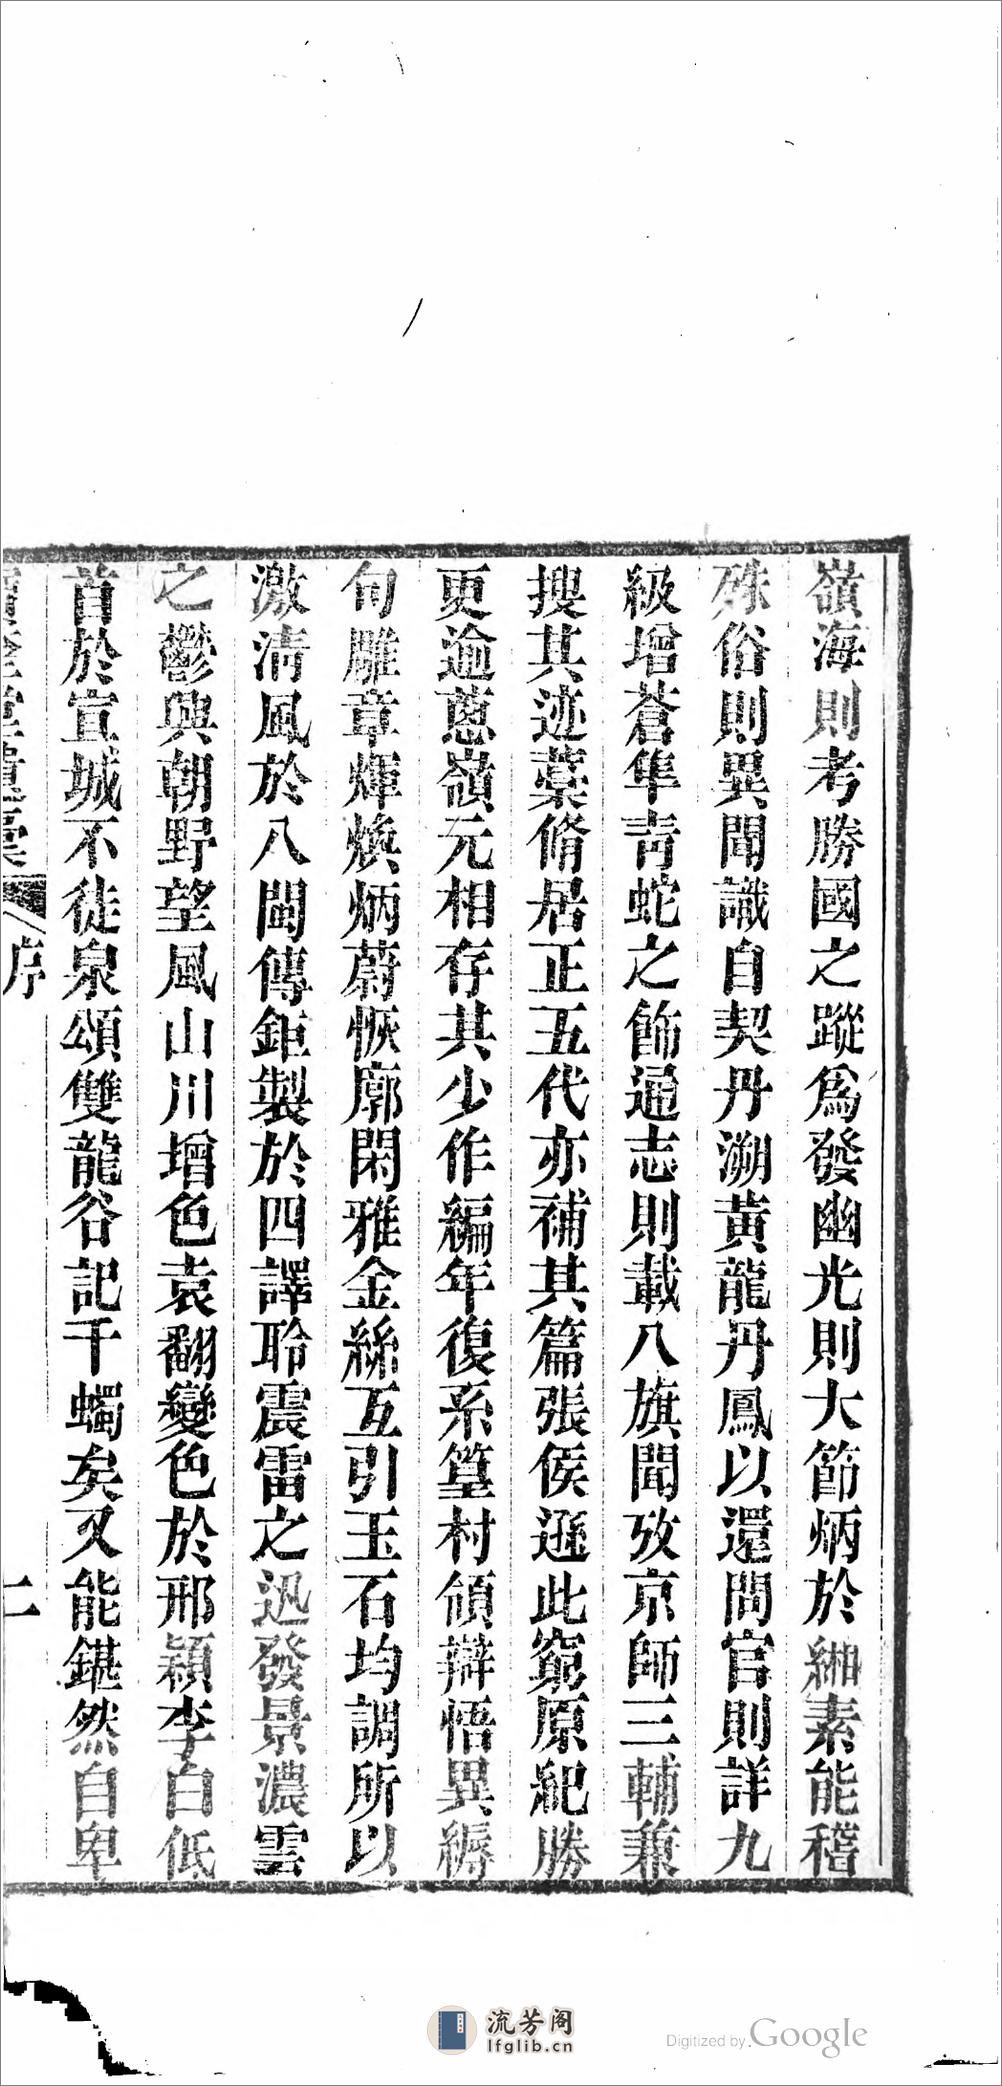 嶺海則考勝國之蹤爲發幽光則大節炳於緗素能稽
殊俗則異聞識自契丹溯黃龍丹鳳以還問官則詳九
級增蒼隼靑蛇之飾通志則載八旗聞攷京師三輔兼
搜其迹藁脩居正五代亦補其篇張侯遜此窮原紀勝
更逾蔥嶺元相存其少作編年復系篁村頎辯悟異縟
句雕章煇煥炳蔚恢廓閑雅金絲互引玉石均調所以
激淸風於八閩傳鉅製於四譯聆震雷之迅發景濃雲
之鬱興朝野望風山川增色袁翻變色於邢穎李白低
首於宣城不徒泉頌雙龍谷記千蠋矣又能鏗然自卑
序
二
流芳阁
lfglib.cn
Digitized by Google